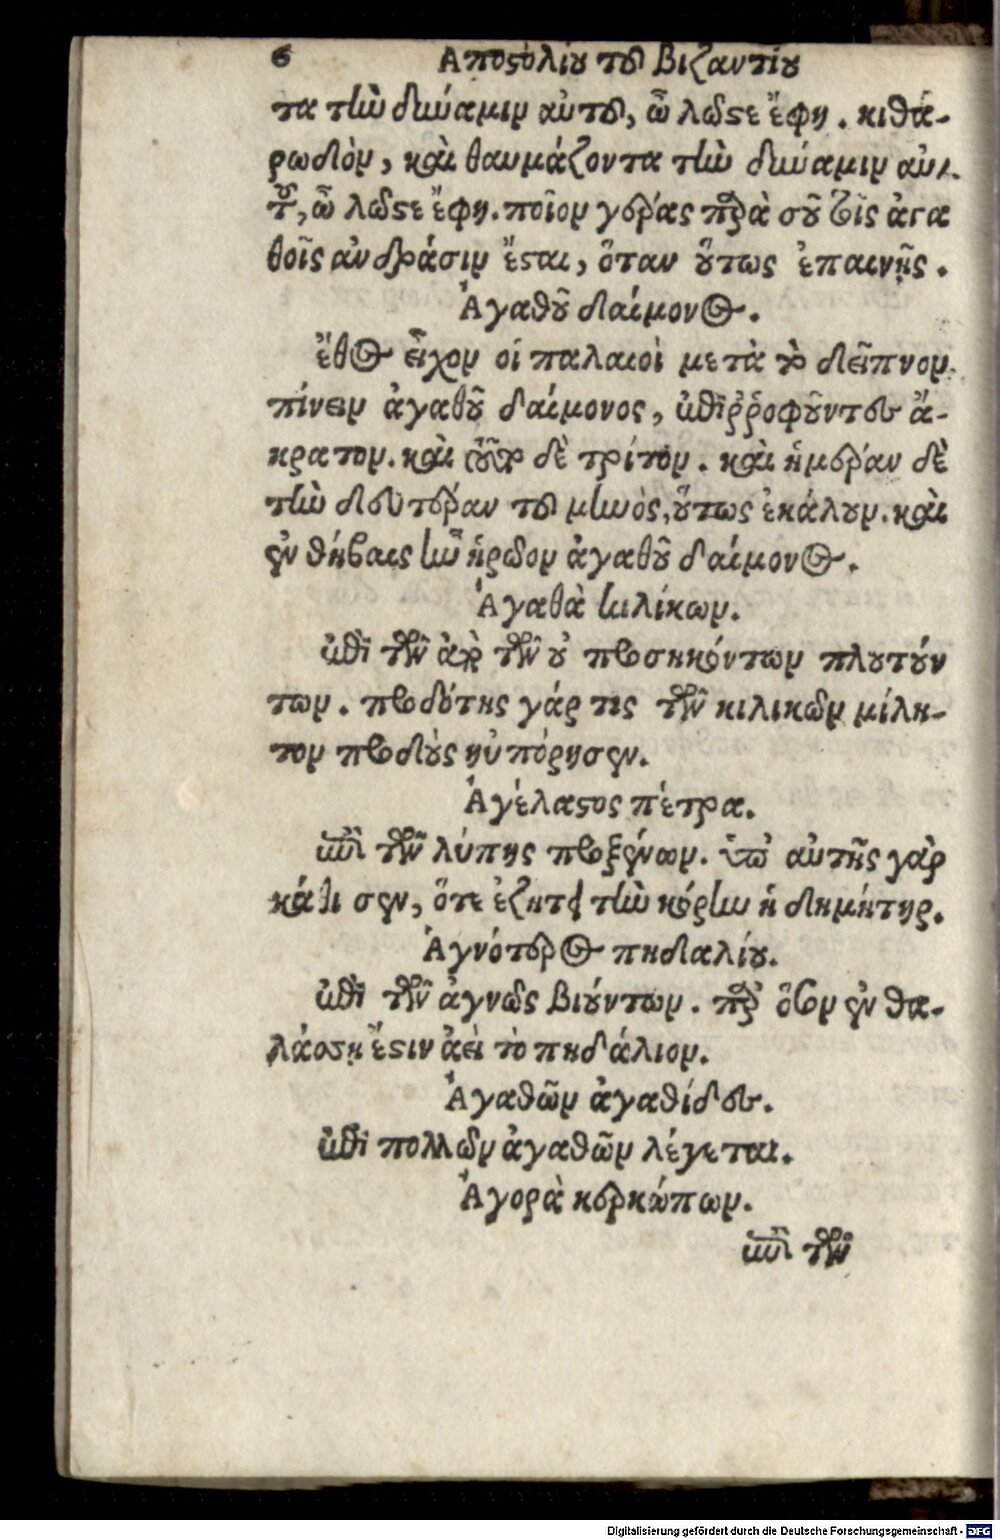 6 Αποστολίου τοῦ Βιζαντίου
τα τὴν δύναμιν αὐτοῦ, ὦ λῶστε ἔφη. κιθα-
ρωδὸν, καὶ θαυμάζοντα τὴν δύναμιν αὐ-
τοῦ, ὦ λῶστε ἔφη. ποῖον γέρας παρὰ σοῦ τοῖς ἀγα
θοῖς ἀνδράσιν ἔσται, ὅταν οὕτως ἐπαινῇς.
Ἀγαθοῦ δαίμονος.
ἔθος εἶχον οἱ παλαιοὶ μετὰ τὸ δεῖπνον
πίνειν ἀγαθοῦ δαίμονος, ἐπιῤῥοφοῦντες ἄ-
κρατον. καὶ δὲ τρίτον. καὶ ἡμέραν δὲ
τὴν δευτέραν τοῦ μηνὸς, οὕτως ἐκάλουν. καὶ
ἐν θήβαις ἦν ἡρῶον ἀγαθοῦ δαίμονος.
Ἀγαθὰ κιλίκων.
ἐπὶ τῶν ἀπὸ τῶν οὐ προσηκόντων πλουτούν
των. προδότης γάρ τις τῶν κιλικῶν μίλη-
τον προδοὺς ηὐπόρησεν.
Ἀγέλαστος πέτρα.
ἐπὶ τῶν λύπης προξένων. ἐπ' αὐτῆς γὰρ
κάθισεν, ὅτε ἐζήτει τὴν κόρην ἡ δημήτηρ.
Ἁγνότερος πηδαλίου.
ἐπὶ τῶν ἁγνῶς βιούντων. παρ' ὅσον ἐν θα-
λάσσῃ ἔστιν ἀεὶ τὸ πηδάλιον.
Ἀγαθῶν ἀγαθίδες.
ἐπὶ πολλῶν ἀγαθῶν λέγεται.
Ἀγορὰ κερκώπων.
ἐπὶ τῶν
Digitalisierung gefördert durch die Deutsche Forschungsgemeinschaft - DFG